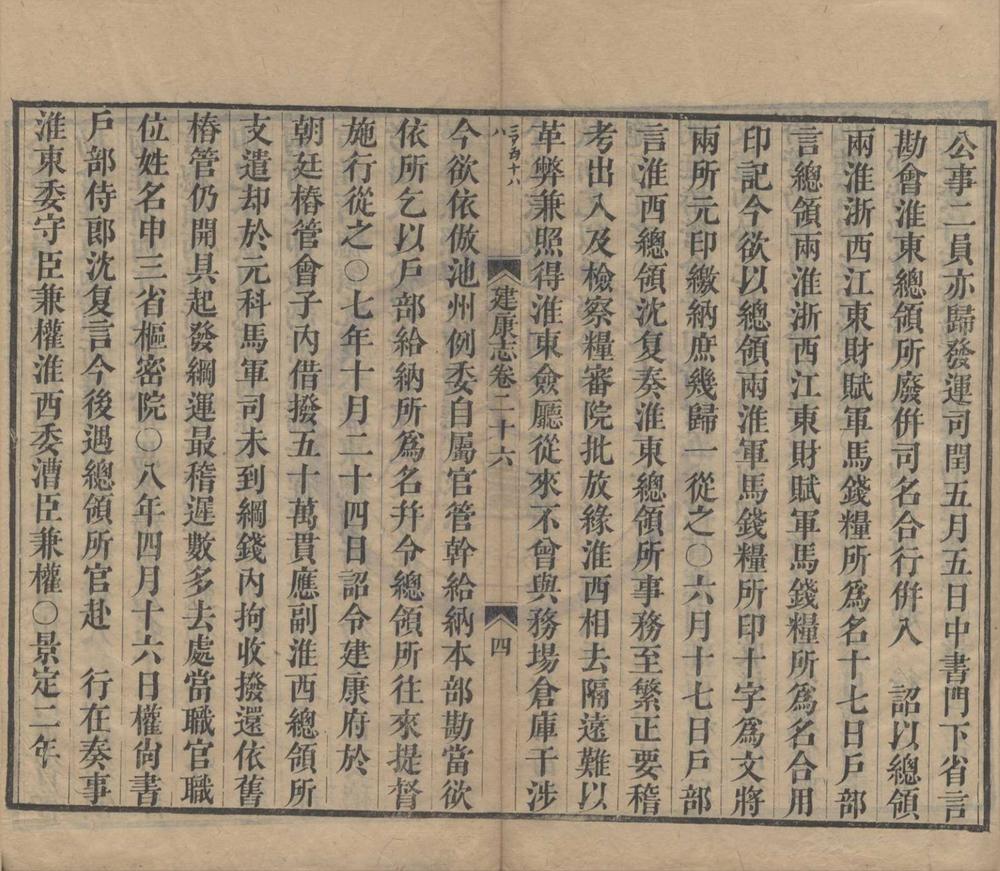 公事二員亦歸發運司閏五月五日中書門下省言
勘會淮東總領所廢併司名合行併入　詔以總領
兩淮浙西江東財賦軍馬錢糧所爲名十七日戶部
言總領兩淮浙西江東財賦軍馬錢糧所爲名合用
印記今欲以總領兩淮軍馬錢糧所印十字爲文將
兩所元印繳納庶幾歸一從之〇六月十七日戶部
言淮西總領沈复奏淮東總領所事務至繁正要稽
考出入及檢察糧審院批放緣淮西相去隔遠難以
革弊兼照得淮東僉廳從來不曾與務場倉庫干涉
建康志卷二十六　四
今欲依倣池州例委自屬官管幹給納本部勘當欲
依所乞以戶部給納所爲名幷令總領所往來提督
施行從之〇七年十月二十四日詔令建康府於
朝廷樁管會子內借撥五十萬貫應副淮西總領所
支遣却於元科馬軍司未到綱錢內拘收撥還依舊
樁管仍開具起發綱運最稽遲數多去處當職官職
位姓名申三省樞密院〇八年四月十六日權尚書
戶部侍郎沈复言今後遇總領所官赴　行在奏事
淮東委守臣兼權淮西委漕臣兼權〇景定二年